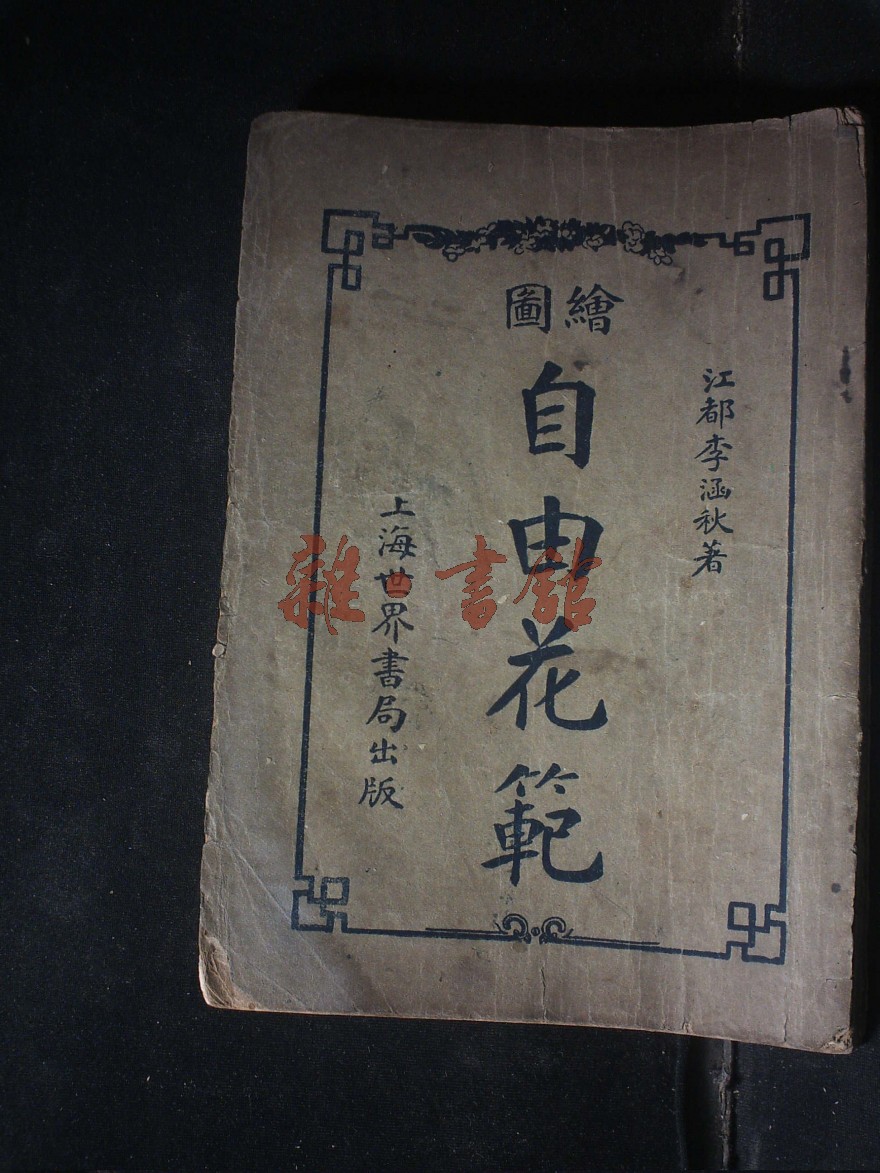 繪圖
自由花範
江都李涵秋著
上海世界書局出版
雜·書館